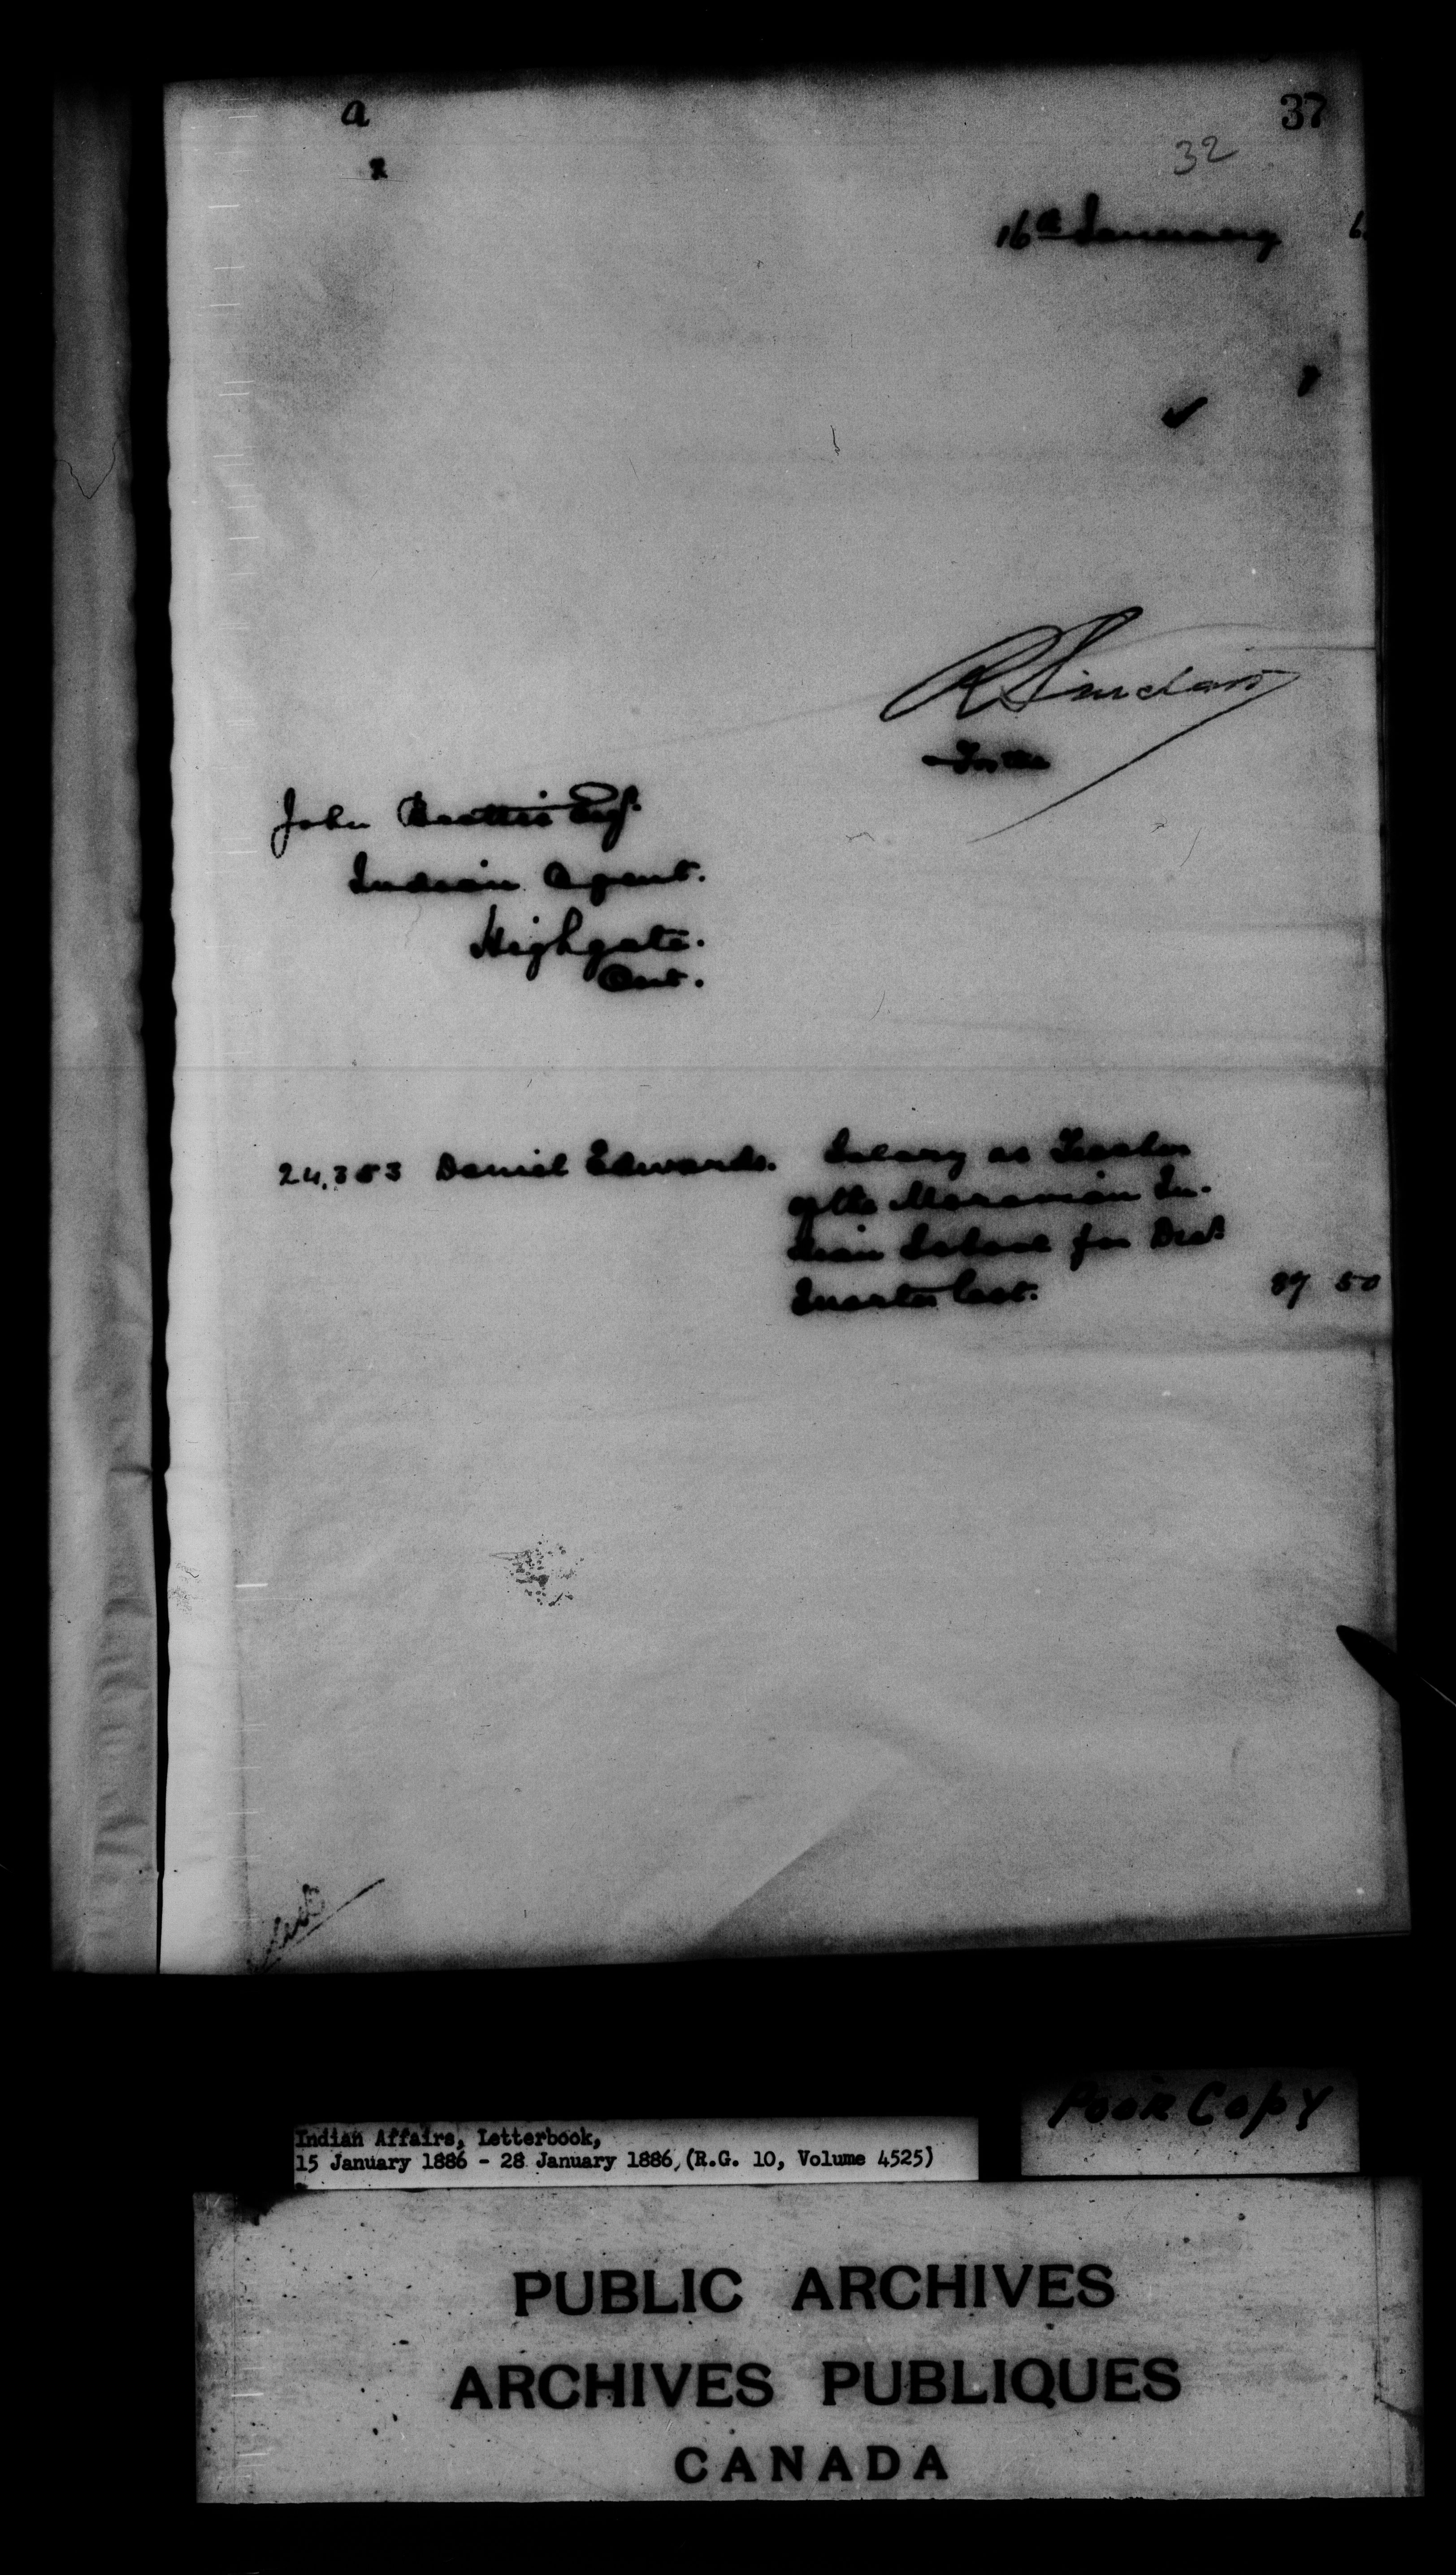 a
37
32
16th January 6
R Sinclair
John Beattie Esq.
Indian Agent.
Highgate.
Ont.
24,353 Daniel Edwards. Salary as Teacher
of the Moravian In-
dian School for Dec.
Quarter last. 87 50
Indian Affairs, Letterbook,
15 January 1886 - 28 January 1886, (R.G. 10, Volume 4525)
Poor Copy
PUBLIC ARCHIVES
ARCHIVES PUBLIQUES
CANADA